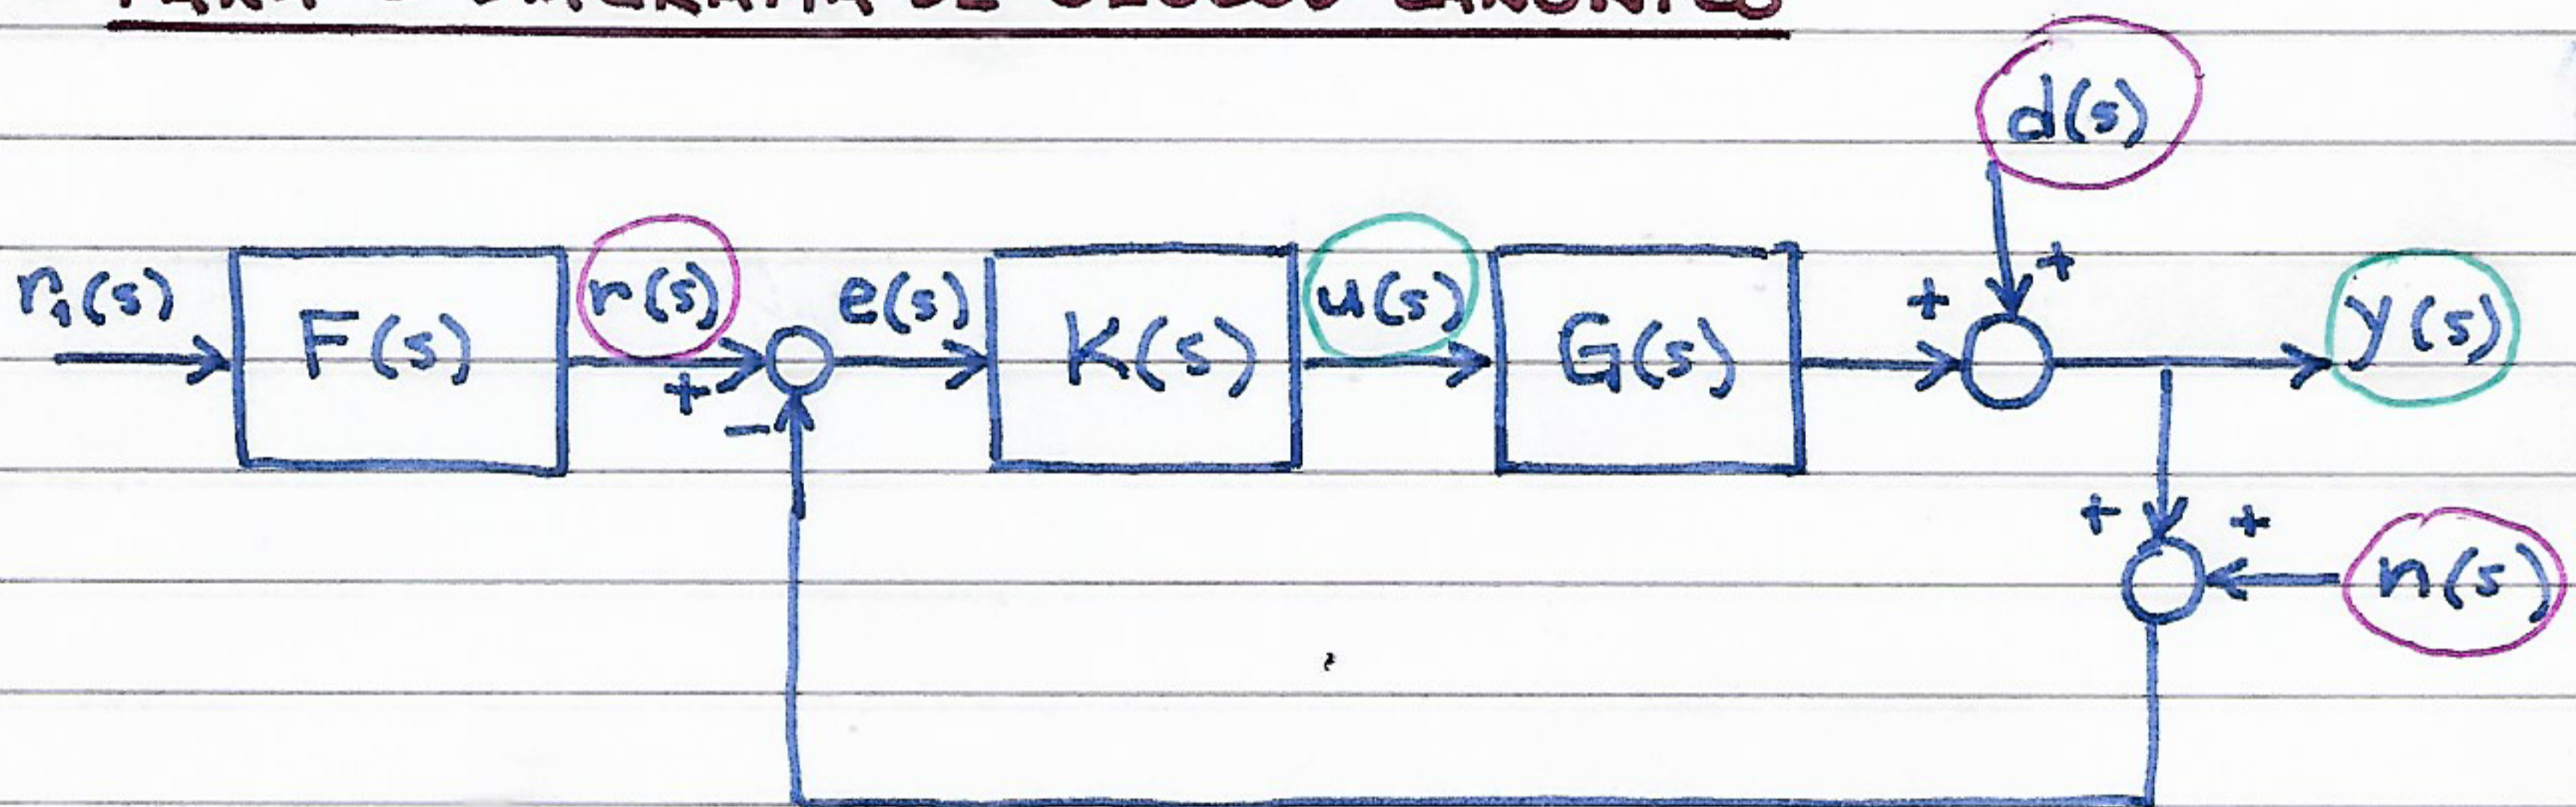 d(s)
r₁(s) F(s) r(s) e(s) K(s) u(s) G(s) + + y(s)
+ −
+ + n(s)